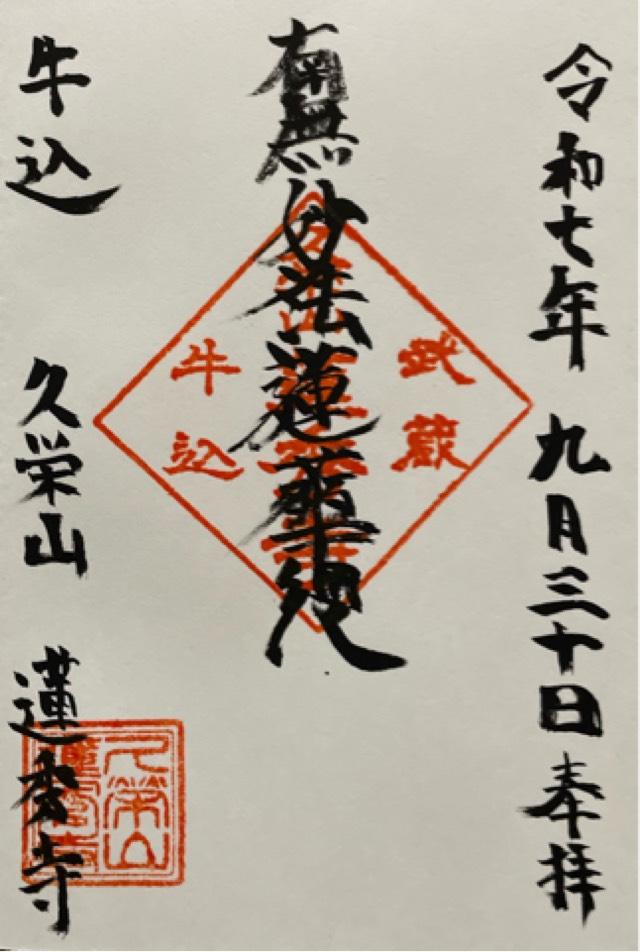 令和七年 九月三十日 奉拝
南無妙法蓮華経
武蔵
牛込
久栄山
蓮秀寺
牛込 久栄山 蓮秀寺
久栄山
蓮秀寺